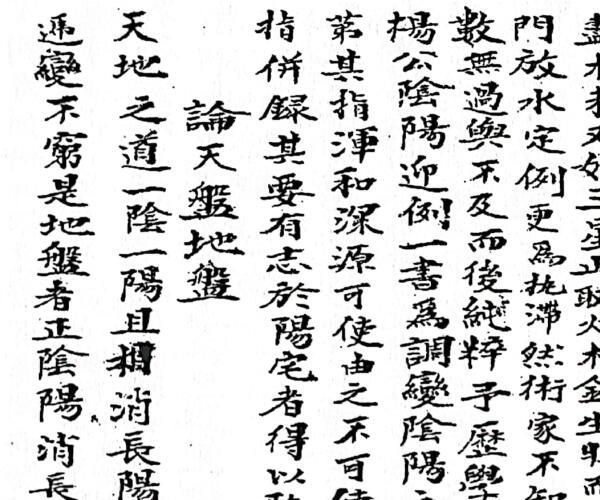 三星止取火木金生
門放水定例更為执滯然術家不知
數無過與不及而後純粹予歷學
楊公陰陽迎例一書為調變陰陽
第其指渾和深源可使由之不可使
指併録其要有志於陽宅者得以
論天盤地盤
天地之道一陰一陽且相消長陽
遞變不窮是地盤者正陰陽消長